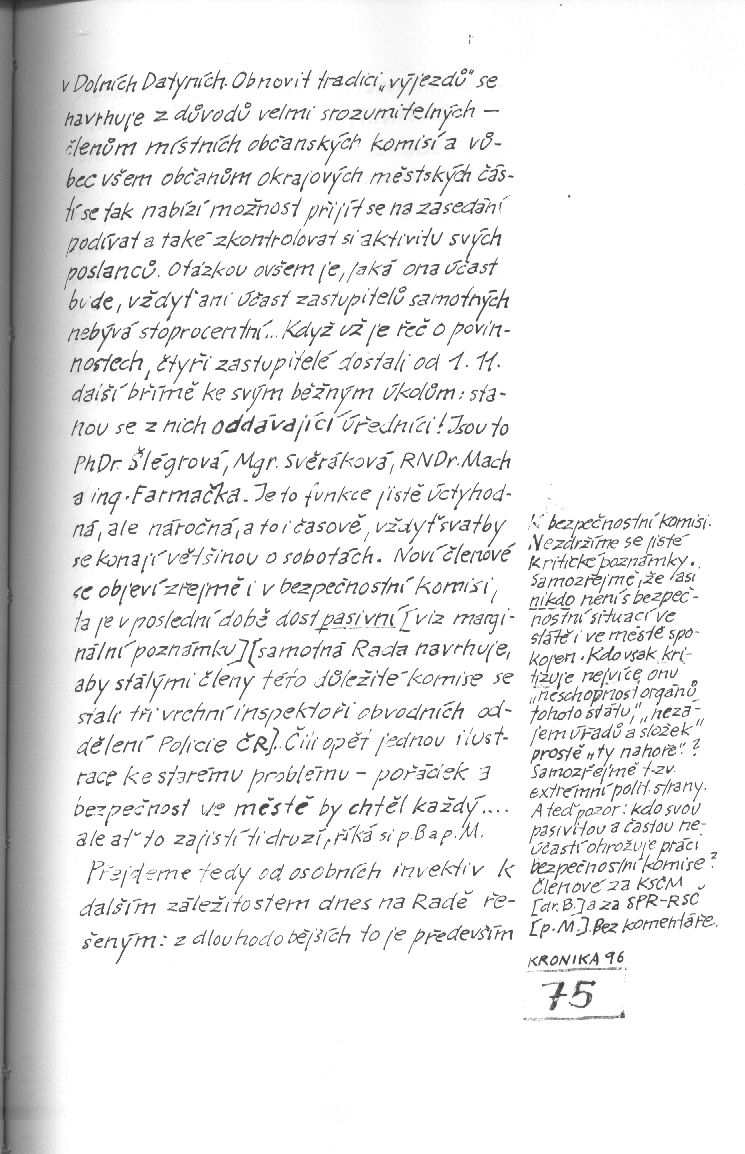 v Dolních Datyních. Obnovit tradici „výjezdů" se
navrhuje z důvodů velmi srozumitelných –
členům místních občanských komisí a vů-
bec všem občanům okrajových městských čás-
tí se tak nabízí možnost přijít se na zasedání
podívat a také zkontrolovat si aktivitu svých
poslanců. Otázkou ovšem je, jaká ona účast
bude, vždyť ani účast zastupitelů samotných
nebývá stoprocentní... Když už je řeč o povin-
nostech, čtyři zastupitelé dostali od 1. 11.
další břímě ke svým běžným úkolům: sta-
nou se z nich oddávající úředníci! Jsou to
PhDr. Šlégrová, Mgr. Svěráková, RNDr. Mach
a ing. Farmačka. Je to funkce jistě úctyhod-
ná, ale náročná, a to i časově, vždyť svatby
se konají většinou o sobotách. Noví členové
se objeví zřejmě i v bezpečnostní komisi,
ta je v poslední době dost pasivní [viz margi-
nální poznámku] [samotná Rada navrhuje,
aby stálými členy této důležité komise se
stali tři vrchní inspektoři obvodních od-
dělení Policie ČR]. Čili opět jednou ilust-
race ke starému problému – pořádek a
bezpečnost ve městě by chtěl každý....
ale ať to zajistí ti druzí, říká si p. B a p. M.
Přejdeme tedy od osobních invektiv k
dalším záležitostem dnes na Radě ře-
šeným: z dlouhodobějších to je především
K bezpečnostní komisi.
Nezdržíme se jisté
kritické poznámky.
Samozřejmě, že asi
nikdo není s bezpeč-
nostní situací ve
státě i ve městě spo-
kojen. Kdo však kri-
tizuje nejvíce onu
„neschopnost orgánů
tohoto státu", „nezá-
jem úřadů a složek"
prostě „ty nahoře"?
Samozřejmě t.zv.
extrémní polit. strany.
A teď pozor: kdo svou
pasivitou a častou ne-
účastí ohrožuje práci
bezpečnostní komise?
Členové za KSČM
[dr. B.] a za SPR-RSČ
[p. M.]. Bez komentáře.
KRONIKA 96
75